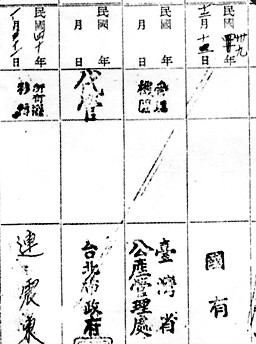 民國卅九年
十二月十 日
國有
民國 年
月 日
管理
機關
臺灣省
公產管理處
民國 年
月 日
代管
台北 政府
民國四十年
月 日
所有權
移轉
連震東